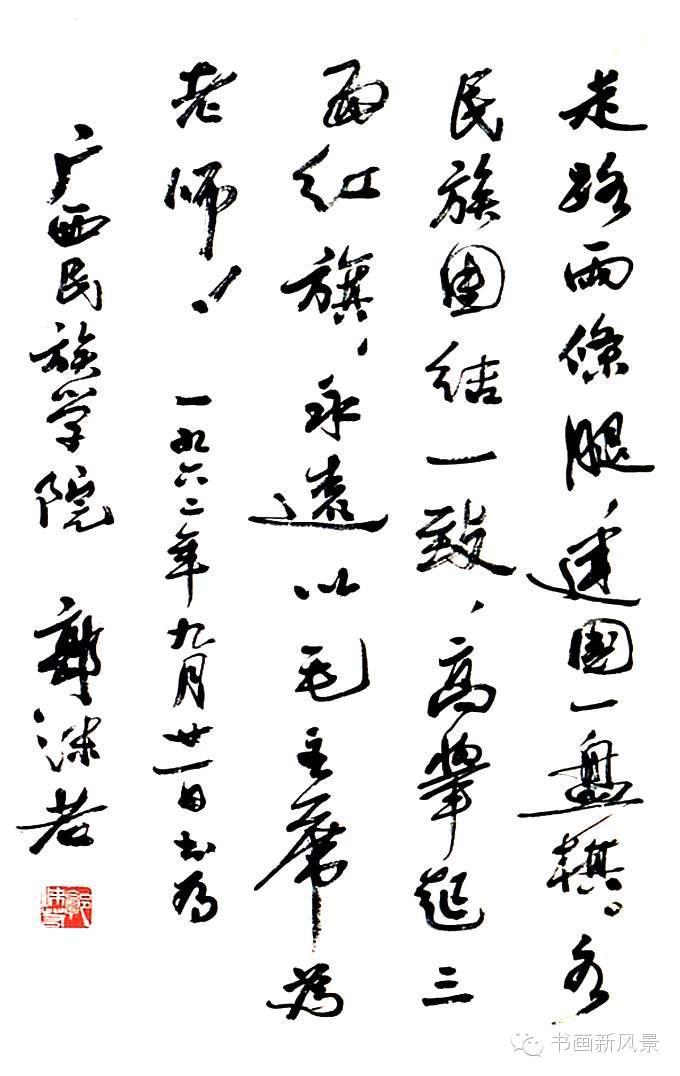 走路两條腿，建国一盘棋。各
民族团结一致，高举起三
面红旗，永远以毛主席为
老师！ 一九六二年九月廿一日书为
广西民族学院 郭沫若
书画新风景